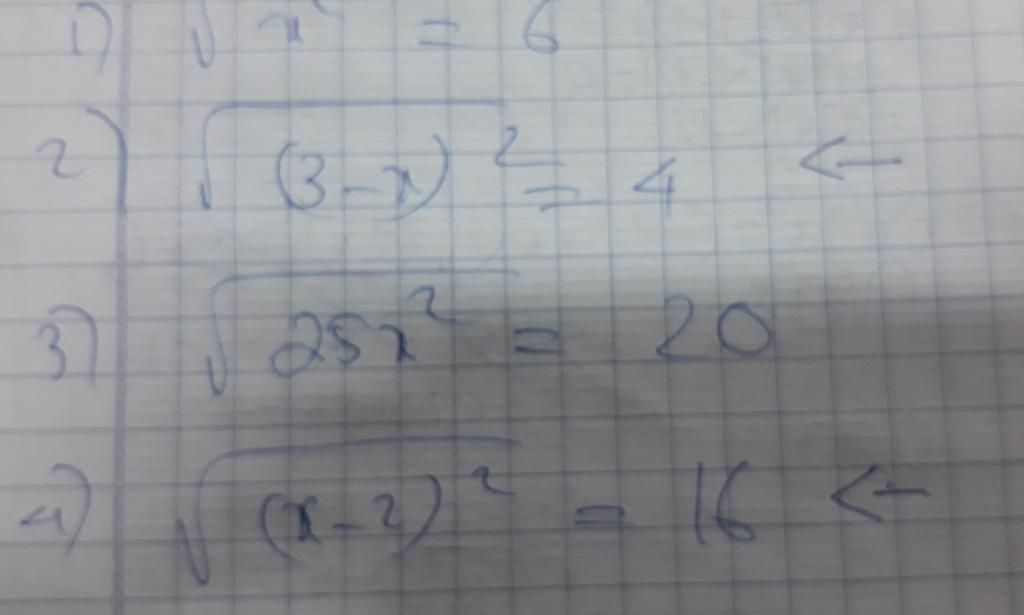 1) √x² = 6
2) √(3-x)² = 4 ←
3) √25x² = 20
4) √(x-2)² = 16 ←